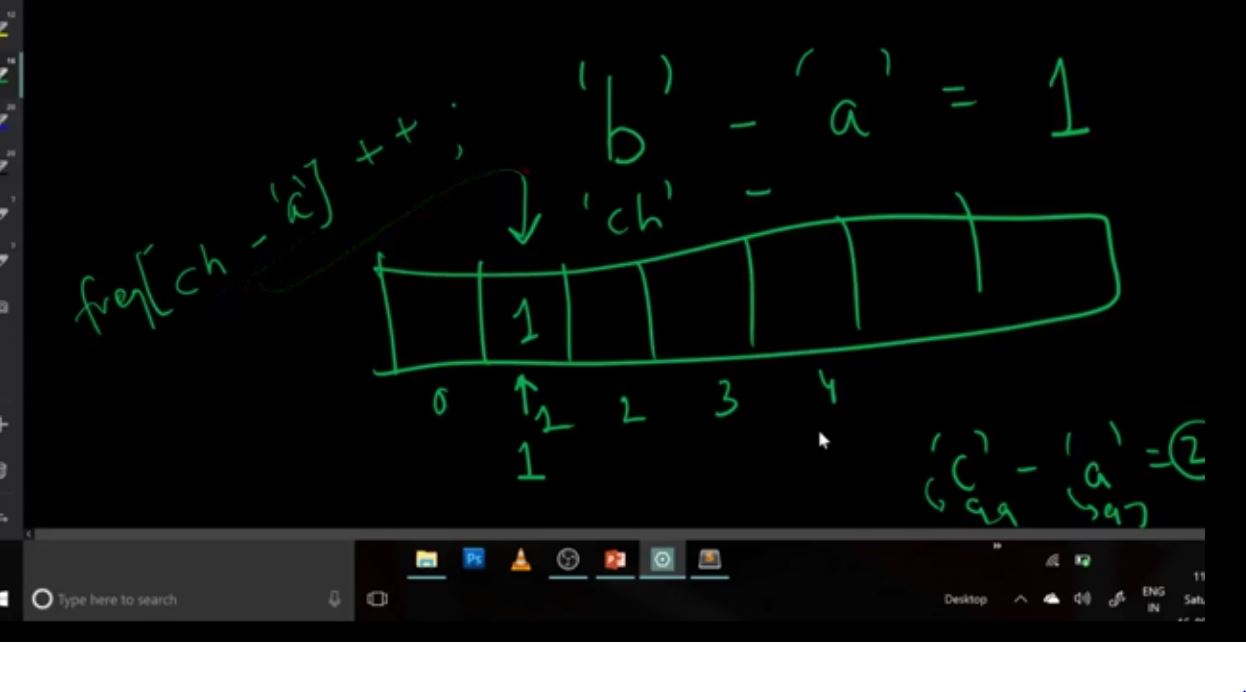 'b' - 'a' = 1
freq[ch - 'a']++;
'ch' -
1
0 1 2 3 4
1
'c' - 'a' = 2
99 97
Ps
Type here to search
Desktop
ENG
IN
11
Satu